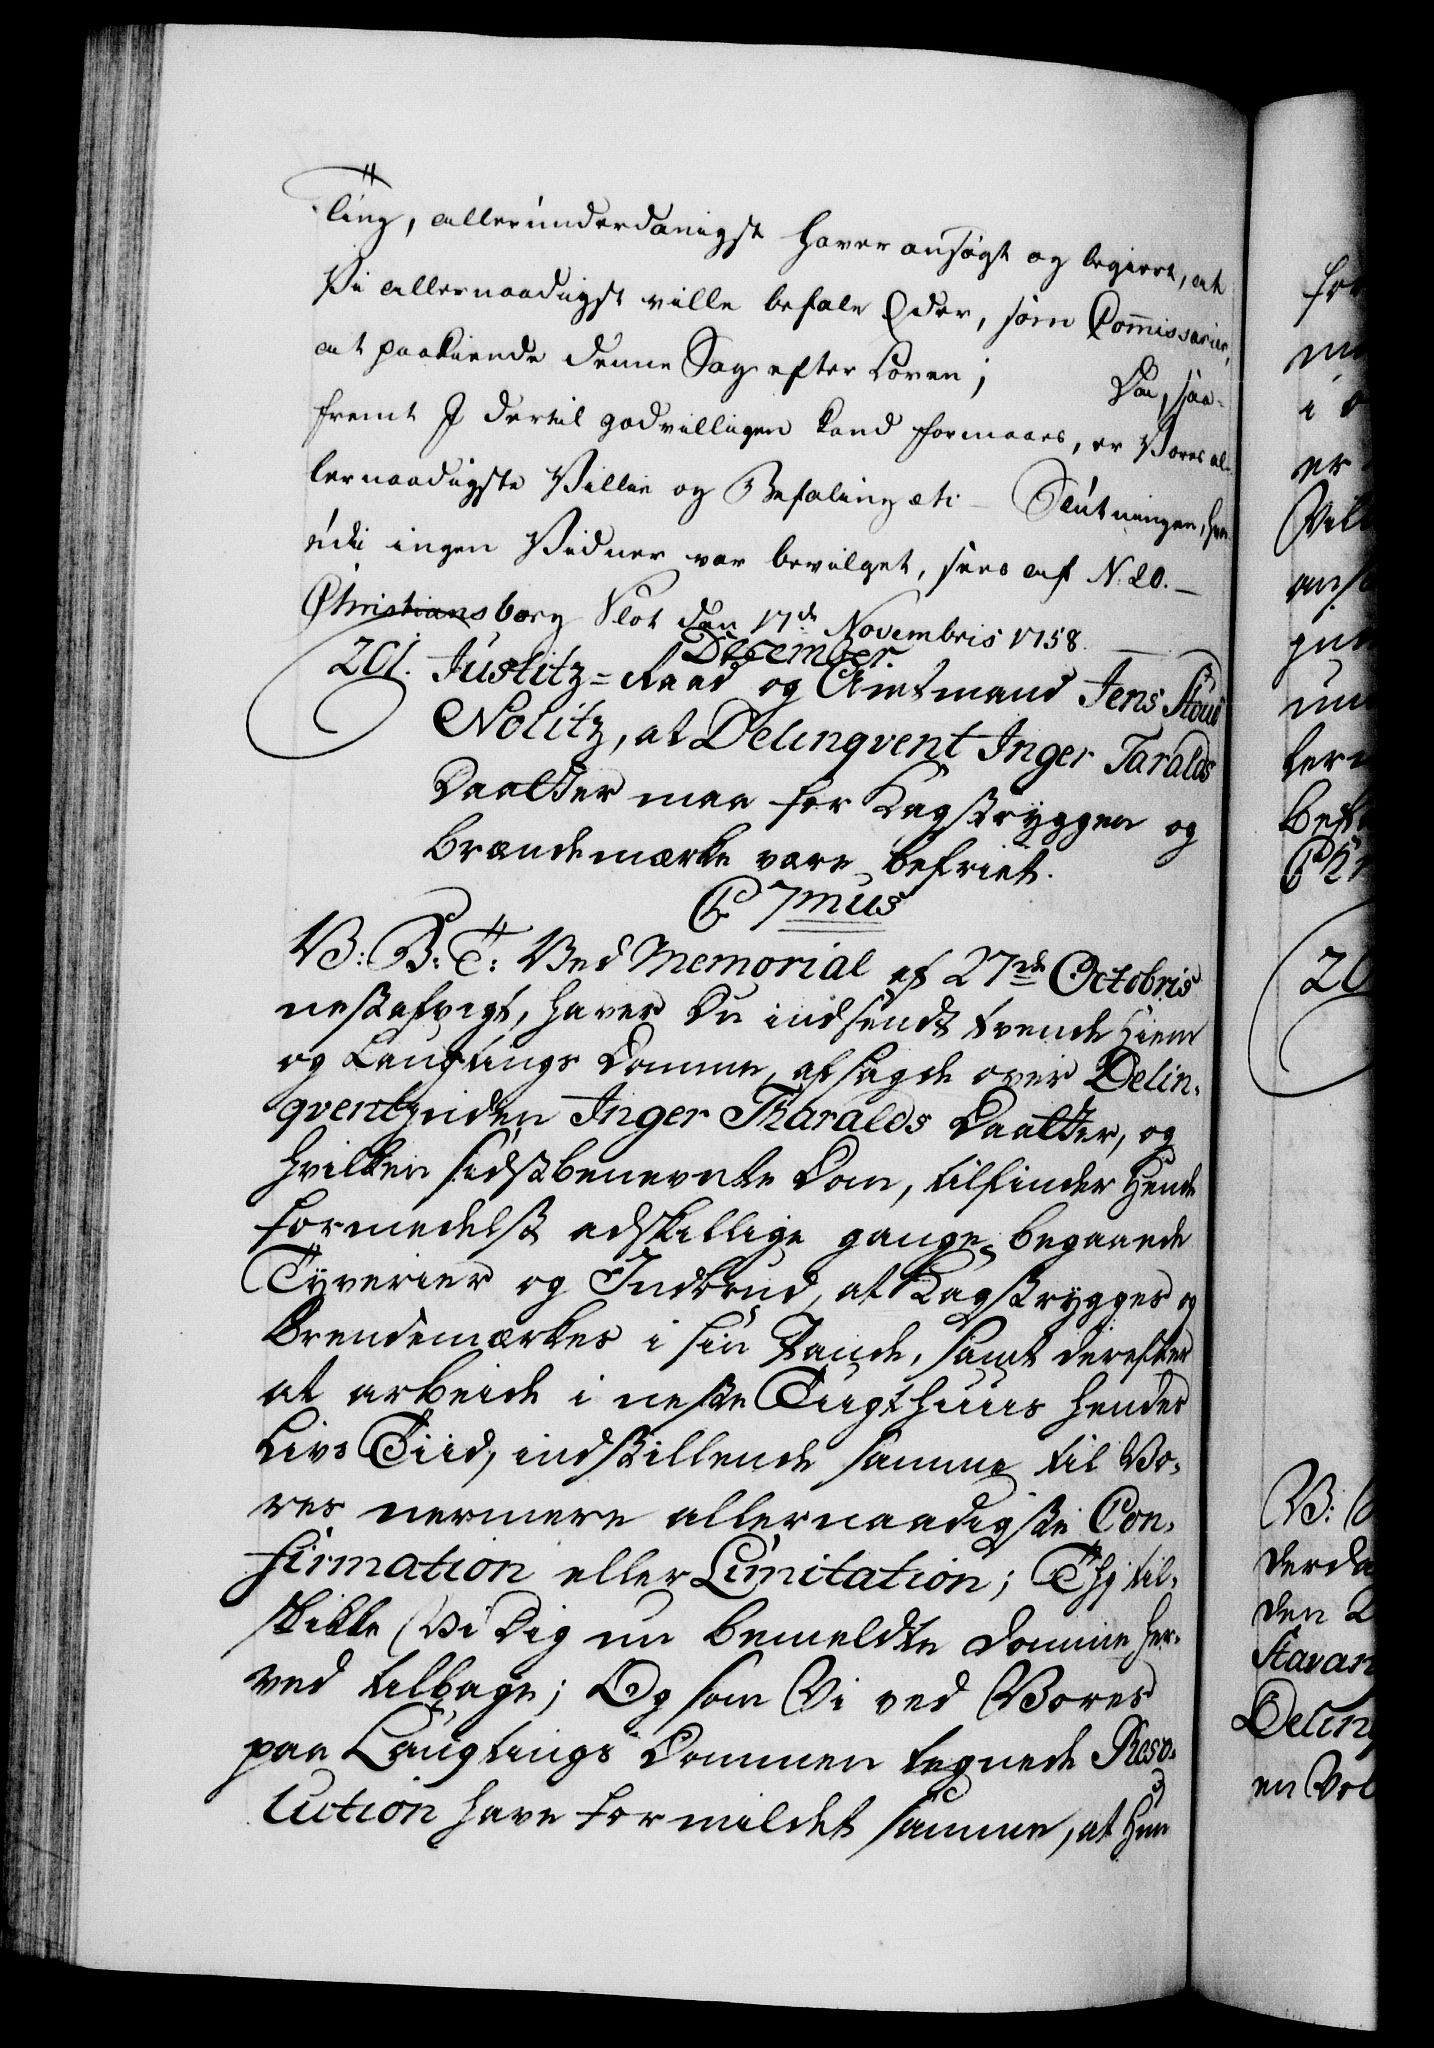 ling, allerunderdanigst haver ansøgt og begiert, at
Vi allernaadigst ville befale Eder, som Commissarier,
at paakiende denne Sag efter Loven; Da, saa-
fremt I dertil godvilligen kand formaaes, er Vores al-
lernaadigste Villie og Befaling etc - Slutningen, hvor-
udi ingen Vidner var bevilget, sees af N. 20. -
Christiansborg Slot den 17de Novembris 1758.
December.
201. Justitz-Raad og Amtmand Jens
Nolitz, at Delinqvent Inger Taralds
Daatter maa for Kagstrygen og
Brændemærke være befriet.
C 7mus
V: B: T: Ved Memorial af 27de Octobris
nestafvigt, haver Du indsendt tvende Hiem
og Laugtings Domme, afsagde over Delin-
qventinden Inger Tharalds Daatter, og
hvilken sidstbenevnte Dom, tilfinder hende
formedelst adskillige gange begaaede
Tyverier og Indbrud, at Kagstryges og
Brendemærkes i sin Pande, samt derefter
at arbeide i neste Tugthuus hendes
Livs Tiid, indstillende samme til Vo-
res nermere allernaadigste Con-
firmation eller Limitation; Thi til-
skikke Vi Dig nu bemeldte Domme her-
ved tilbage; Og som Vi ved Vores
paa Laugtings Dommen tegnede Reso-
lution have formildet samme, at hun